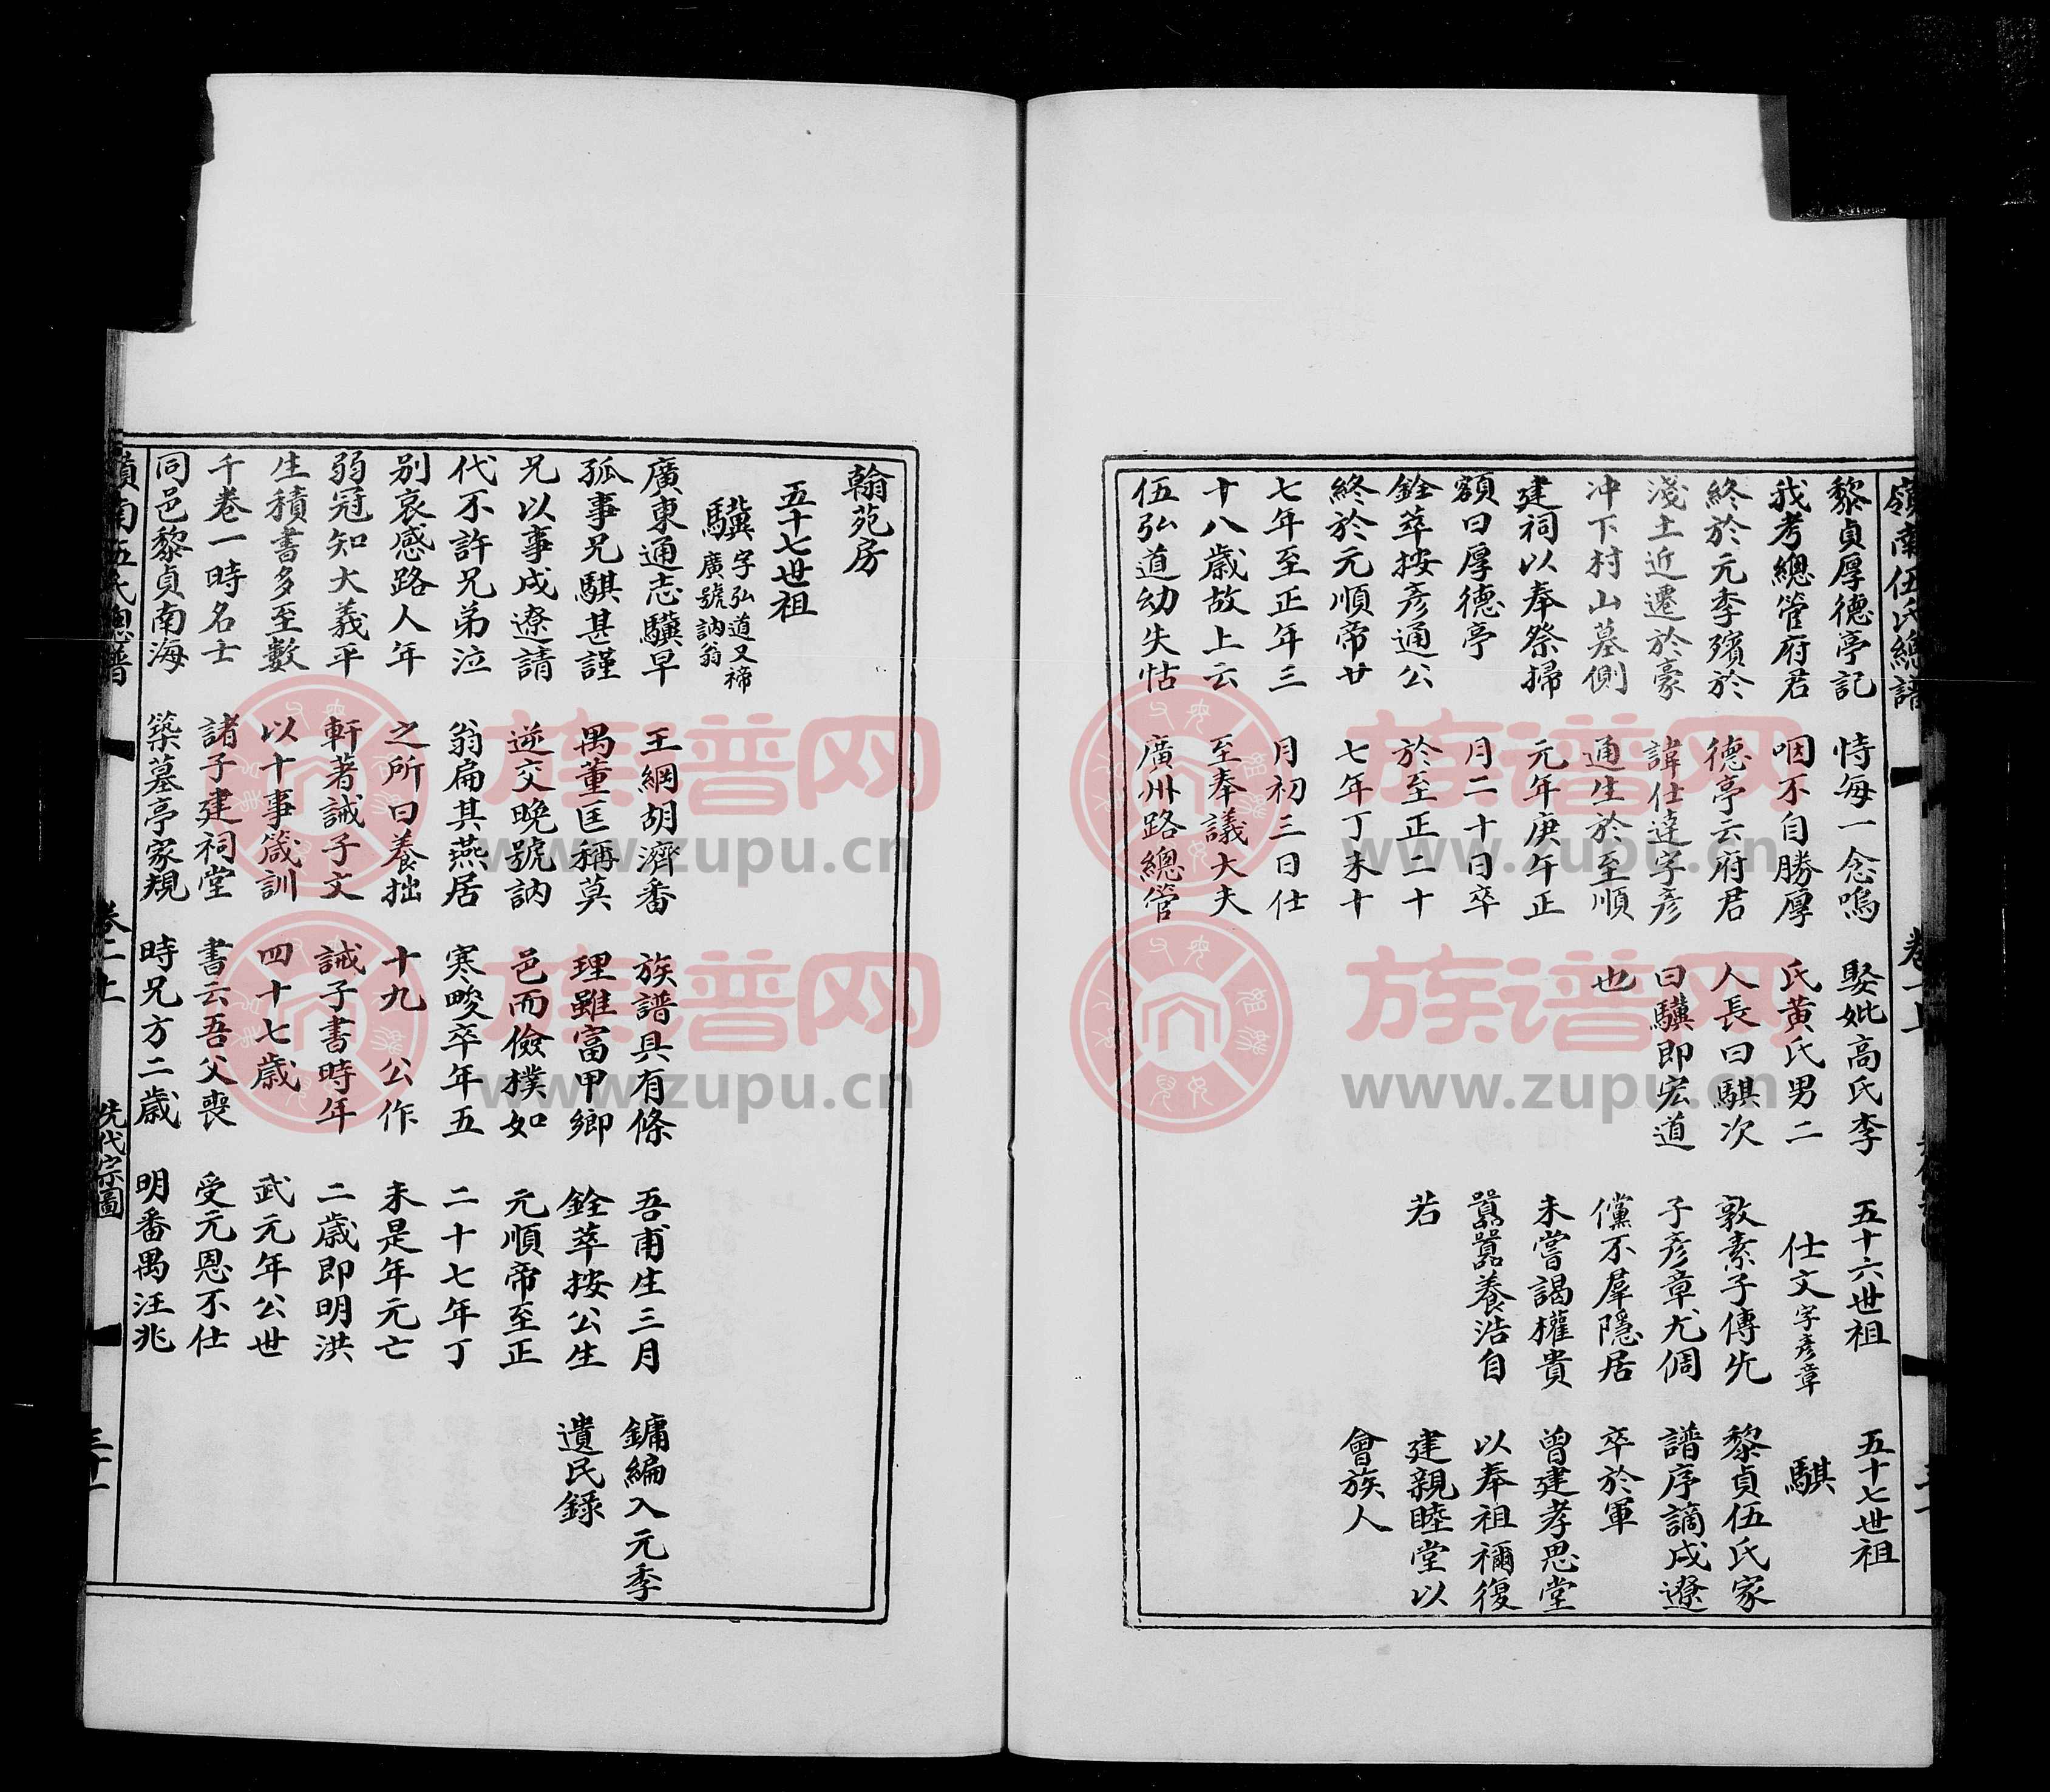 嶺南伍氏總譜
黎貞厚德亭記
我考總管府君
終於元季殯於
淺土近遷於豪
冲下村山墓側
建祠以奉祭掃
額曰厚德亭
銓萃按彦通公
終於元順帝廿
七年至正年三
十八歲故上云
伍弘道幼失怙
恃每一念嗚
咽不自勝厚
德亭云府君
諱仕達字彦
通生於至順
元年庚午正
月二十日卒
於至正二十
七年丁未十
月初三日仕
至奉議大夫
廣州路總管
娶妣高氏李
氏黄氏男二
人長曰騏次
曰驥即宏道
也
五十六世祖
仕文字彦章
敦素子傳先
子彦章尤倜
儻不羣隱居
未嘗謁權貴
囂囂養浩自
若
五十七世祖
騏
黎貞伍氏家
譜序謫戍遼
卒於軍
曾建孝思堂
以奉祖禰復
建親睦堂以
會族人
翰苑房
五十七世祖
驥字弘道又褅
廣號訥翁
廣東通志驥早
孤事兄騏甚謹
兄以事戍遼請
代不許兄弟泣
别哀感路人年
弱冠知大義平
生積書多至數
千卷一時名士
同邑黎貞南海
王綱胡濟番
禺董匡稱莫
逆交晚號訥
翁扁其燕居
之所曰養拙
軒著誡子文
以十事箴訓
諸子建祠堂
築墓亭家規
族譜具有條
理雖富甲鄉
邑而儉樸如
寒畯卒年五
十九 公作
誡子書時年
四十七歲
書云吾父喪
時兄方二歲
吾甫生三月
銓萃按公生
元順帝至正
二十七年丁
未是年元亡
二歲即明洪
武元年公世
受元恩不仕
明番禺汪兆
鏞編入元季
遺民錄
嶺南伍氏總譜
卷二上
先代宗圖
三十一
族谱网
www.zupu.cn
族谱网
www.zupu.cn
族谱网
www.zupu.cn
族谱网
www.zupu.cn